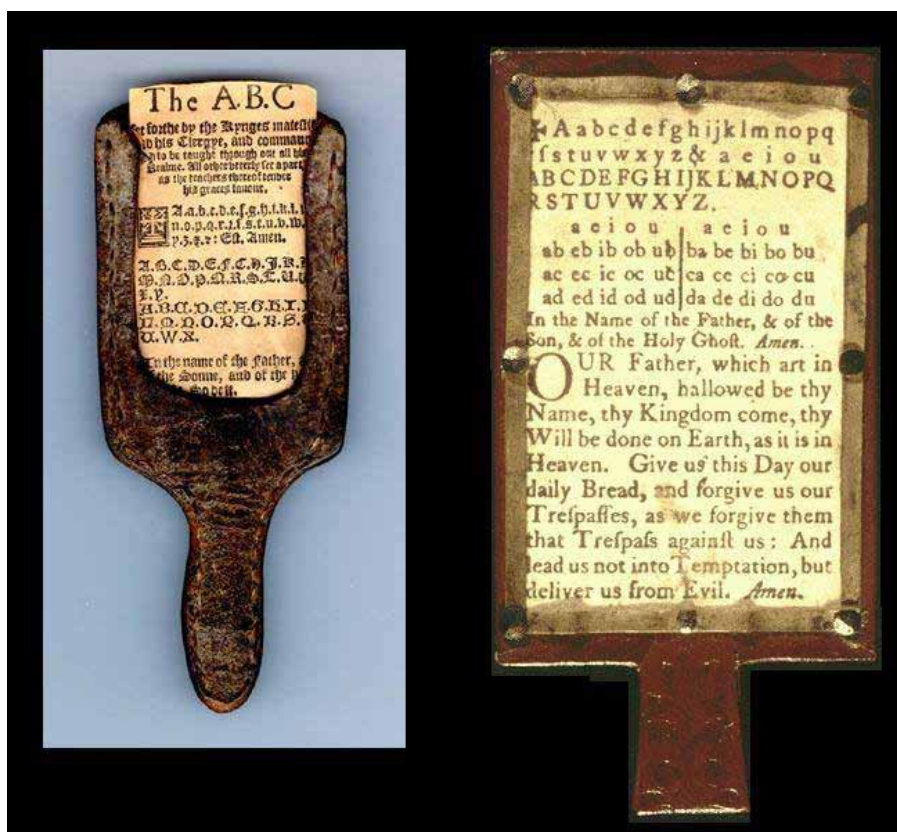 The A.B.C
forthe by the Kynges maiesti
his Clergye, and command
to be taught through out all his
Realme. All other vtterly set apart
as the teachers thereof tender
his graces fauour.
A.a.b.c.d.e.f.g.h.i.k.l.
n.o.p.q.r.ſ.s.t.u.v.w.
y.z.
: Est. Amen.
A.B.C.D.E.F.G.H.
M.N.O.P.Q.R.S.T.U
Y.
A.B.C.D.E.F.G.H.I.
M.N.O.P.Q.R.S.
U.W.X.
In the name of the Father,
the Sonne, and of the
So be it.
✠ A a b c d e f g h i j k l m n o p q
ſ s t u v w x y z & a e i o u
A B C D E F G H I J K L M N O P Q
R S T U V W X Y Z.
a e i o u | a e i o u
ab eb ib ob ub | ba be bi bo bu
ac ec ic oc uc | ca ce ci co cu
ad ed id od ud | da de di do du
In the Name of the Father, & of the
Son, & of the Holy Ghoſt. Amen.
OUR Father, which art in
Heaven, hallowed be thy
Name, thy Kingdom come, thy
Will be done on Earth, as it is in
Heaven. Give us this Day our
daily Bread, and forgive us our
Treſpaſſes, as we forgive them
that Treſpaſs againſt us: And
lead us not into Temptation, but
deliver us from Evil. Amen.